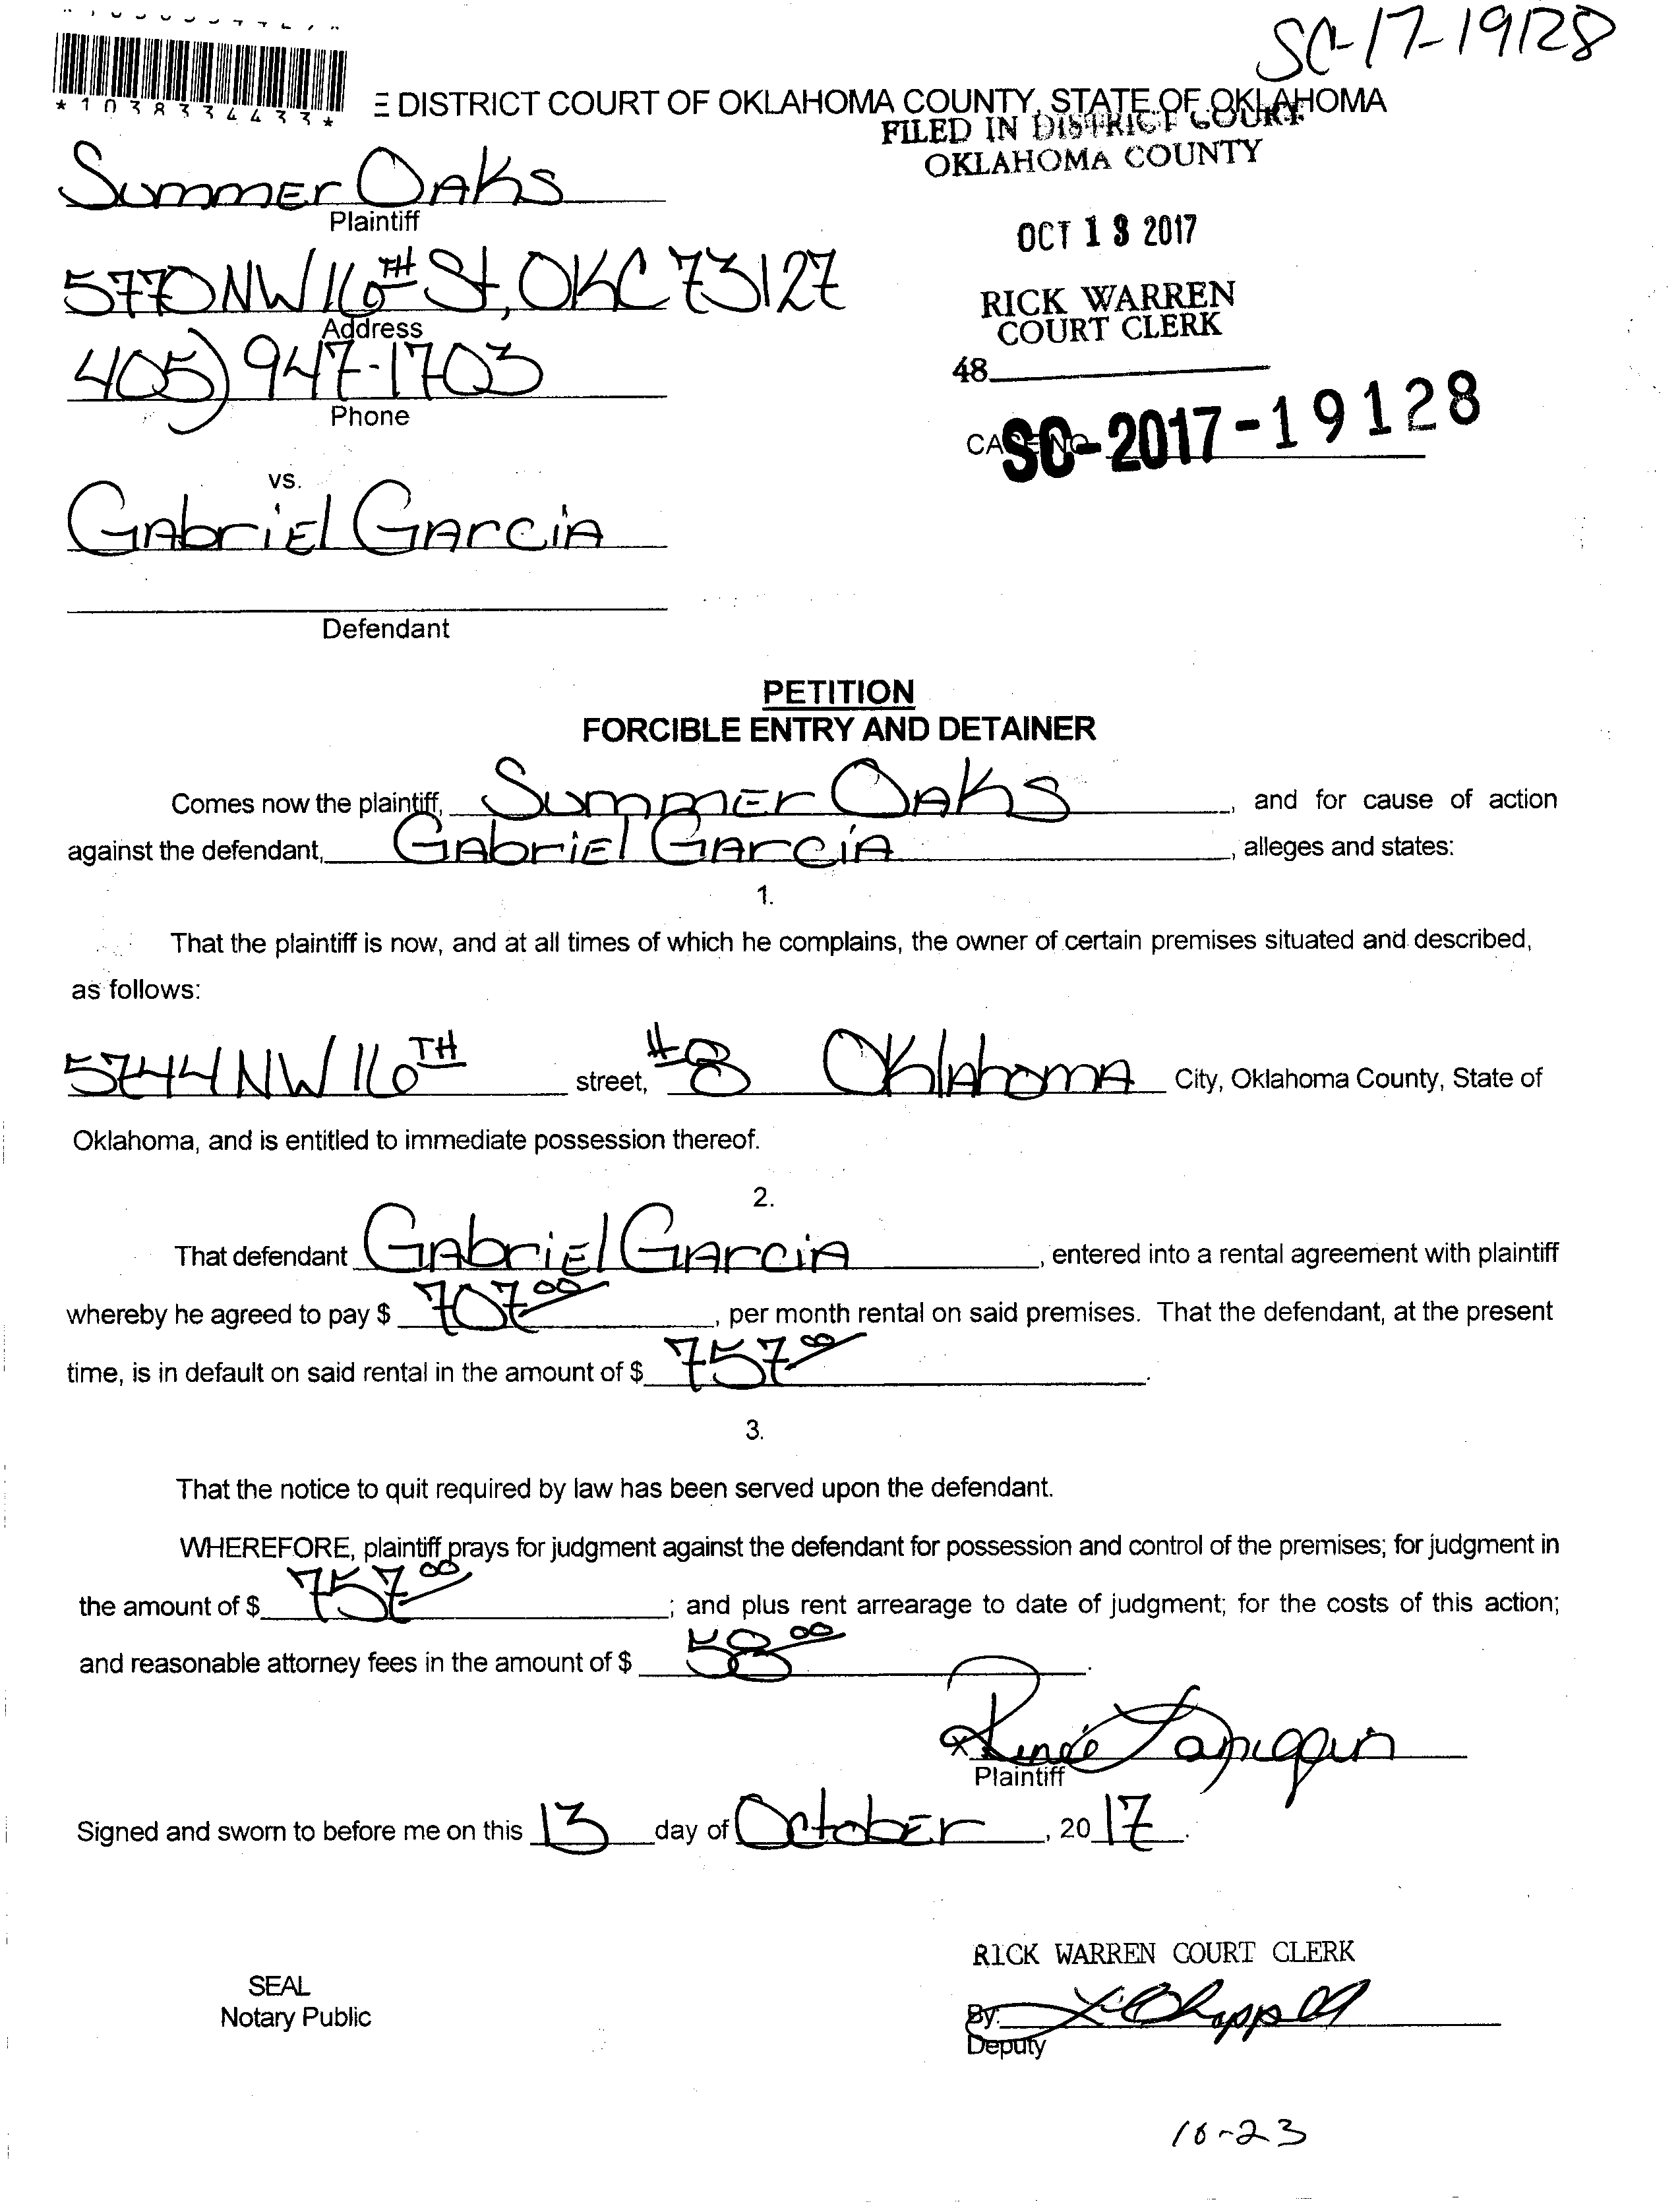 SC-17-19128
*1038334433*
E DISTRICT COURT OF OKLAHOMA COUNTY, STATE OF OKLAHOMA
FILED IN DISTRICT COURT
OKLAHOMA COUNTY
Summer Oaks
Plaintiff
OCT 13 2017
5770 NW 16TH St, OKC 73127
Address
RICK WARREN
COURT CLERK
405) 947-1703
Phone
48
CASE NO. SC-2017-19128
vs.
Gabriel Garcia
Defendant
PETITION
FORCIBLE ENTRY AND DETAINER
Comes now the plaintiff, Summer Oaks, and for cause of action
against the defendant, Gabriel Garcia, alleges and states:
1.
That the plaintiff is now, and at all times of which he complains, the owner of certain premises situated and described,
as follows:
5744 NW 16TH street, #8 Oklahoma City, Oklahoma County, State of
Oklahoma, and is entitled to immediate possession thereof.
2.
That defendant Gabriel Garcia, entered into a rental agreement with plaintiff
whereby he agreed to pay $ 707.00, per month rental on said premises. That the defendant, at the present
time, is in default on said rental in the amount of $ 757.00.
3.
That the notice to quit required by law has been served upon the defendant.
WHEREFORE, plaintiff prays for judgment against the defendant for possession and control of the premises; for judgment in
the amount of $ 757.00; and plus rent arrearage to date of judgment; for the costs of this action;
and reasonable attorney fees in the amount of $ 58.00.
Plaintiff
Signed and sworn to before me on this 13 day of October, 2017.
RICK WARREN COURT CLERK
SEAL
Notary Public
By:
Deputy
10-23